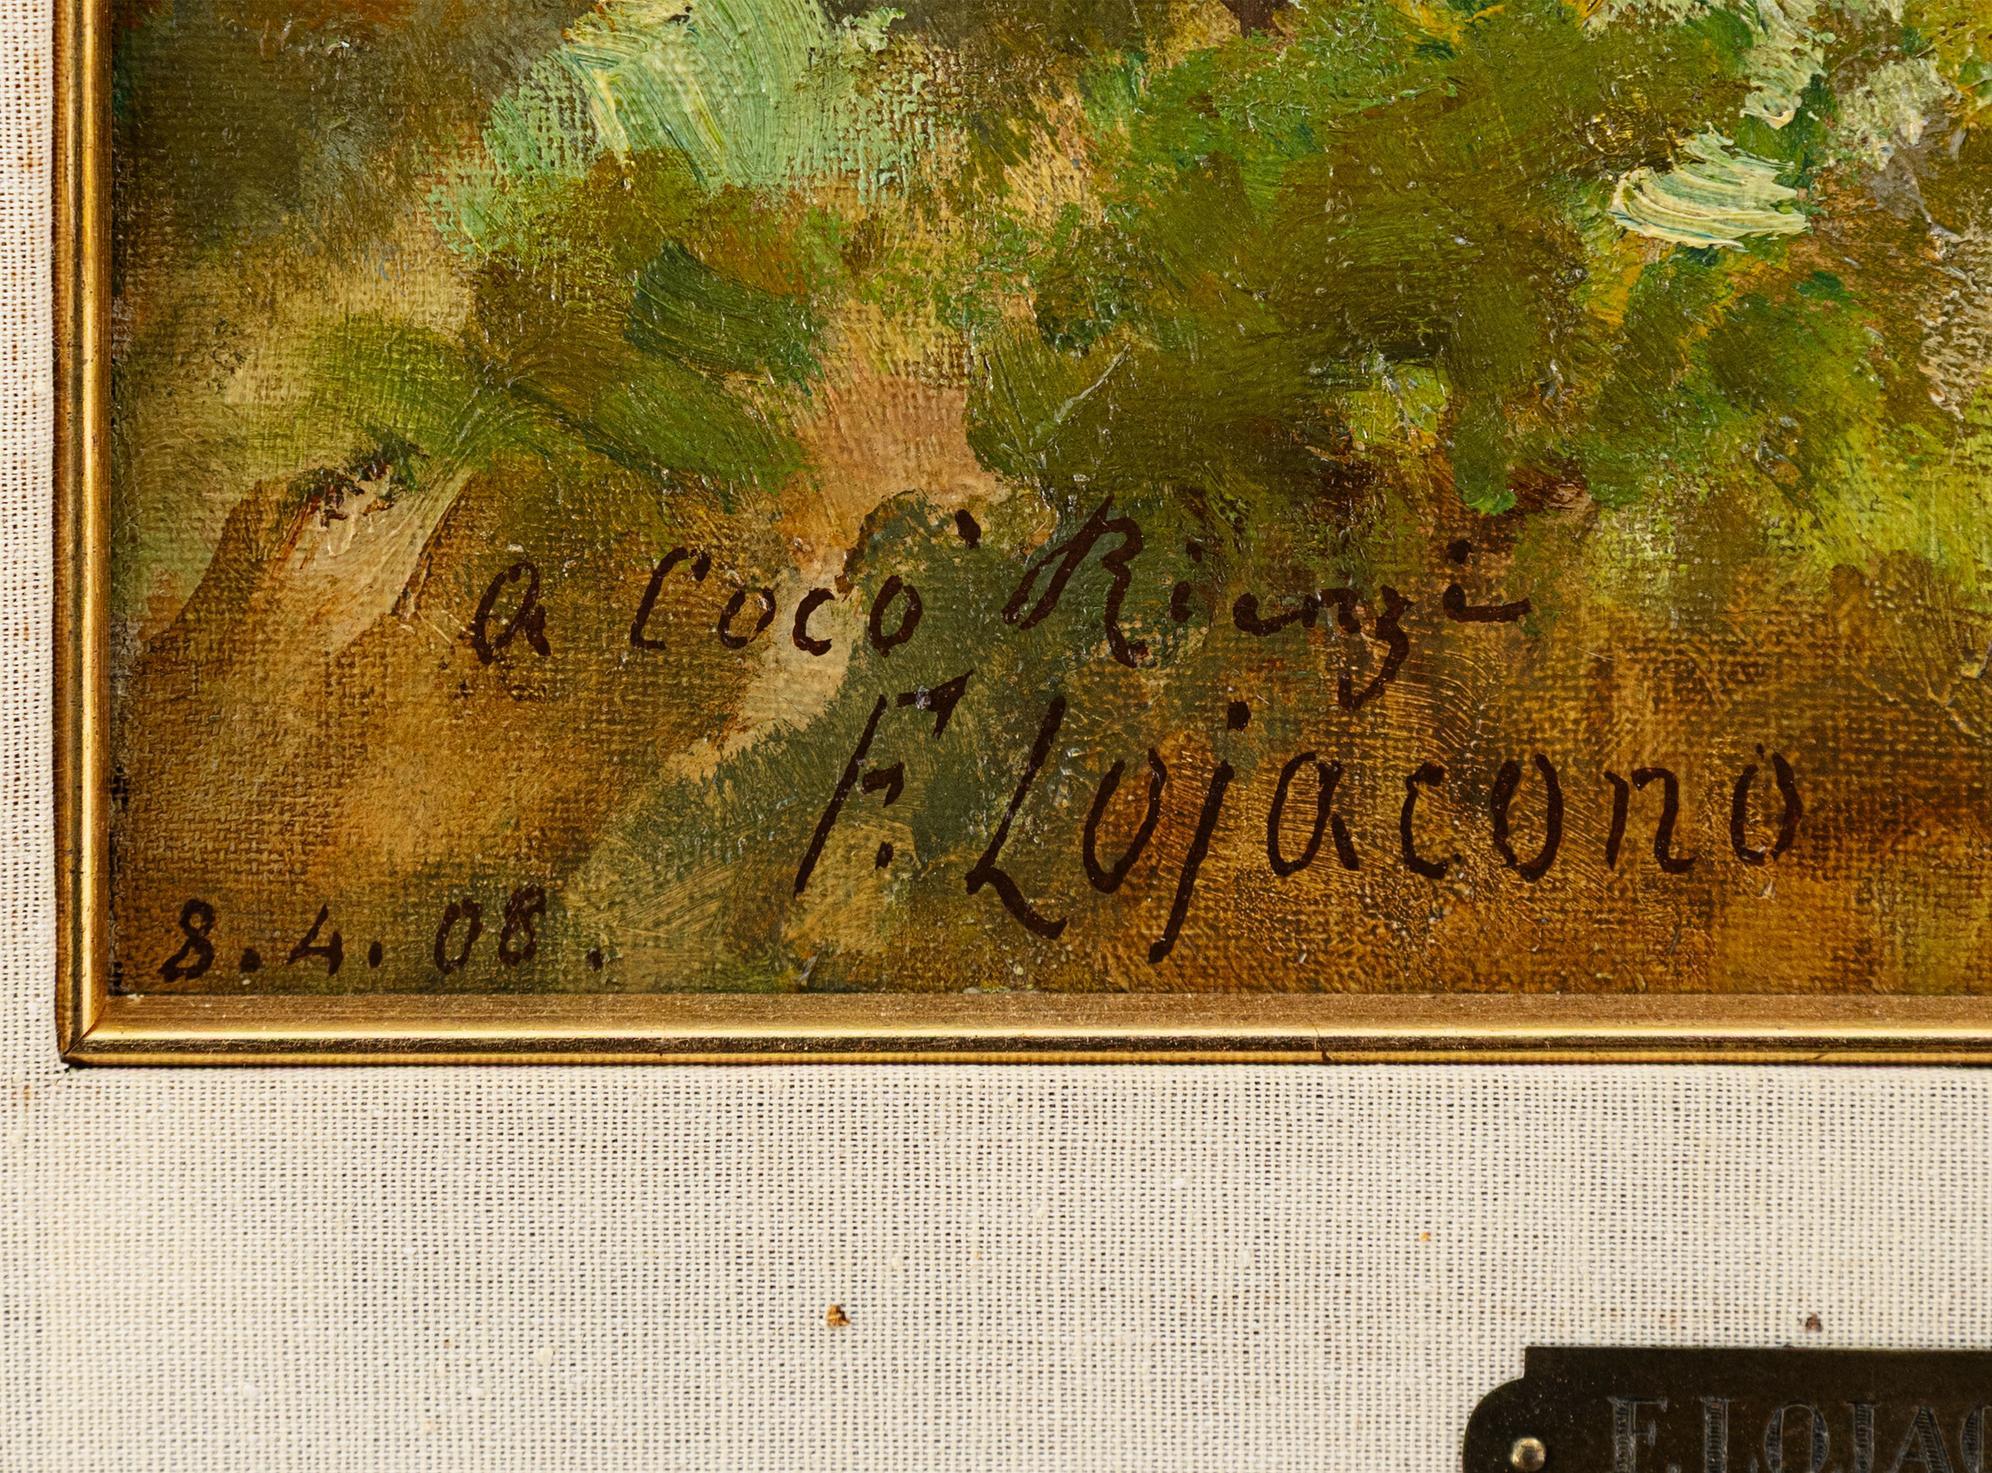 a Cocò Rienzi
F. Lojacono
8.4.08.
F. LOJAC